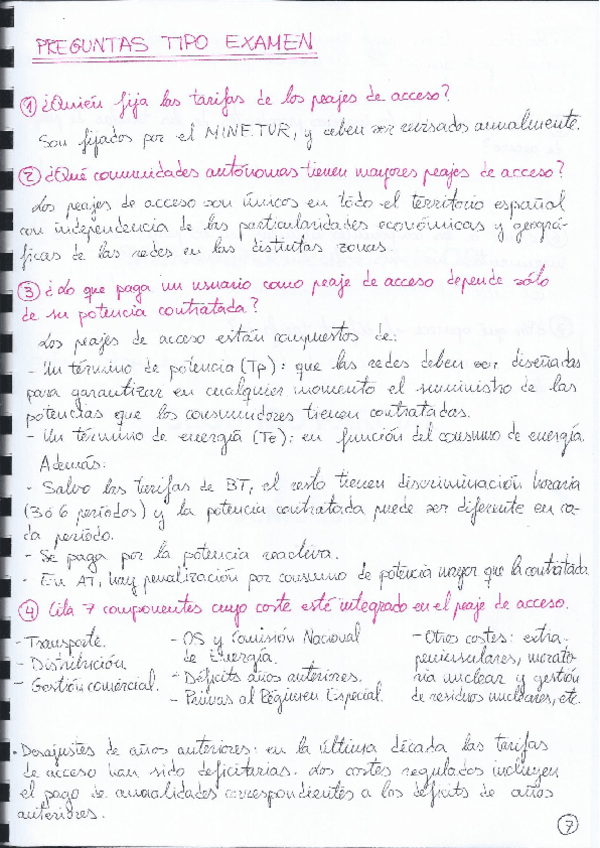 PREGUNTAS TIPO EXAMEN
① ¿Quién fija las tarifas de los peajes de acceso?
Son fijados por el MINETUR, y deben ser revisados anualmente.
② ¿Qué comunidades autónomas tienen mayores peajes de acceso?
Los peajes de acceso son únicos en todo el territorio español
con independencia de las particularidades económicas y geográ-
ficas de las redes en las distintas zonas.
③ ¿Lo que paga un usuario como peaje de acceso depende sólo
de su potencia contratada?
Los peajes de acceso están compuestos de:
- Un término de potencia (Tp): que las redes deben ser diseñadas
para garantizar en cualquier momento el suministro de las
potencias que los consumidores tienen contratadas.
- Un término de energía (Te): en función del consumo de energía.
Además:
- Salvo las tarifas de BT, el resto tienen discriminación horaria
(3 ó 6 períodos) y la potencia contratada puede ser diferente en ca-
da período.
- Se paga por la potencia reactiva.
- En AT, hay penalización por consumo de potencia mayor que la contratada.
④ Cita 7 componentes cuyo coste esté integrado en el peaje de acceso.
- Transporte.
- Distribución.
- Gestión comercial.
- OS y Comisión Nacional
de Energía.
- Déficits años anteriores.
- Primas al Régimen Especial.
- Otros costes: extra-
peninsulares, morato-
ria nuclear y gestión
de residuos nucleares, etc.
· Desajustes de años anteriores: en la última década las tarifas
de acceso han sido deficitarias. Los costes regulados incluyen
el pago de anualidades correspondientes a los déficits de años
anteriores.
⑦